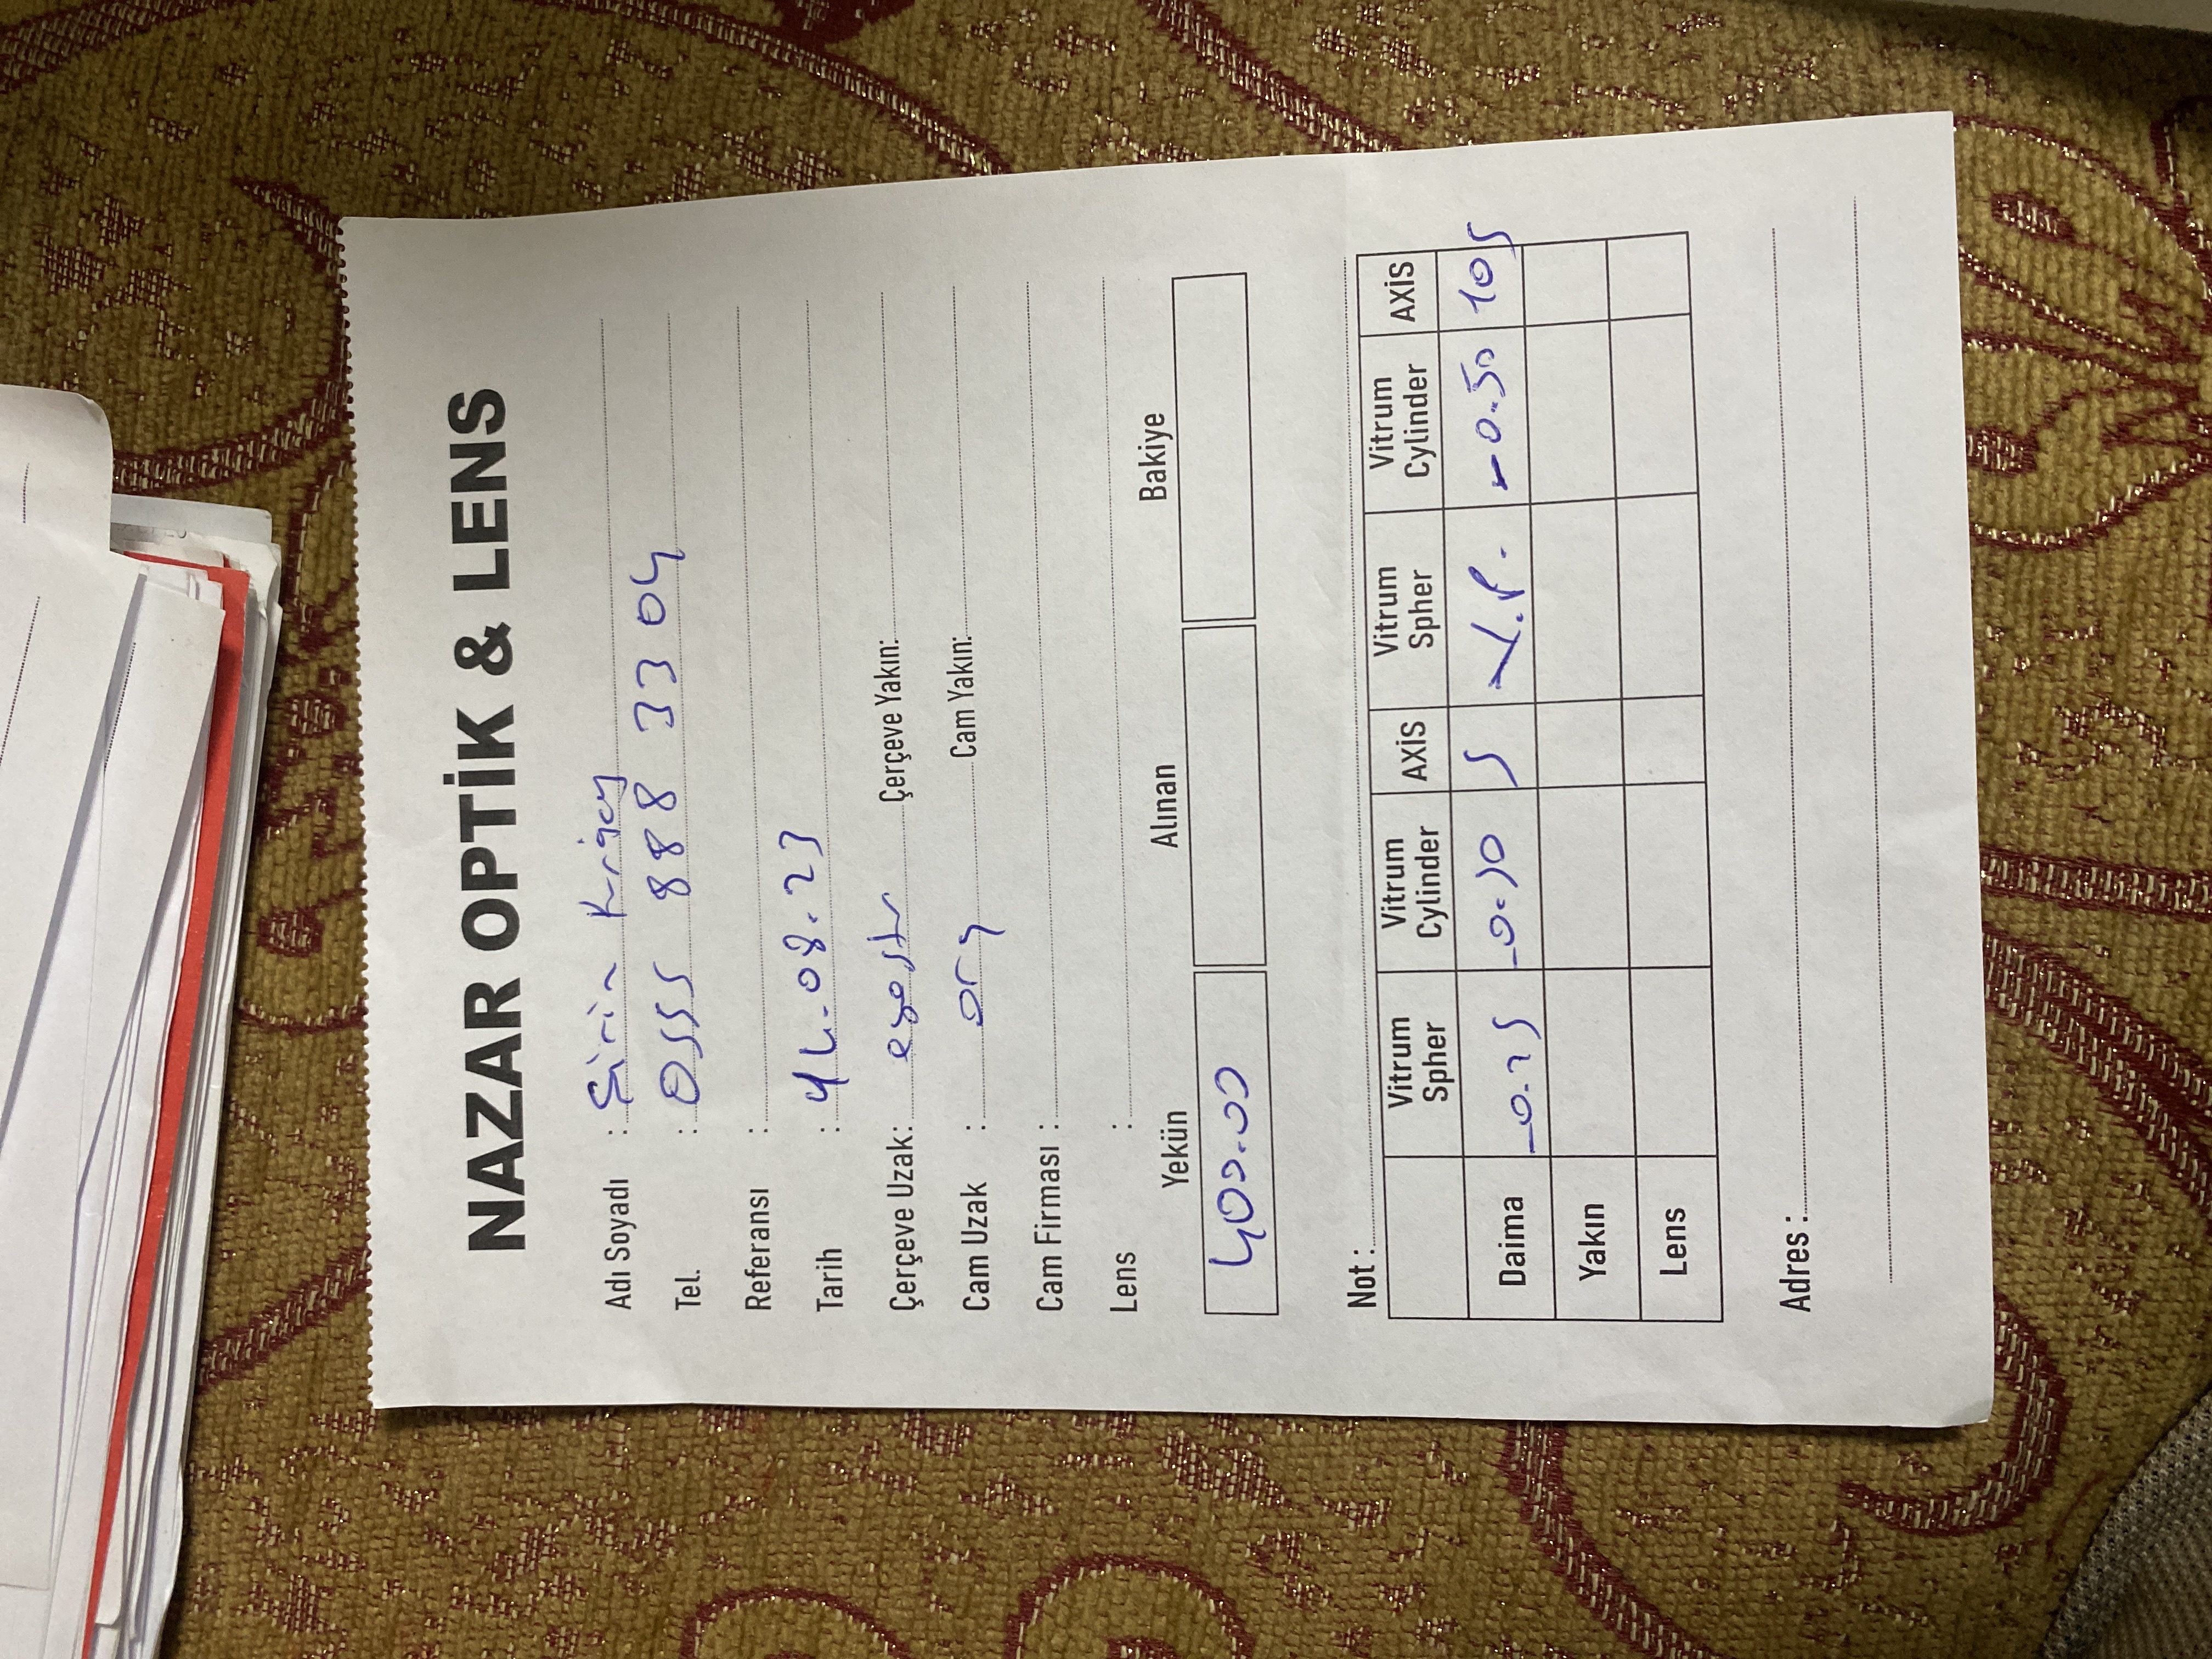 NAZAR OPTİK & LENS
Adı Soyadı : Şirin
Tel. : 0555 888 33 04
Referansı :
Tarih : 14.08.23
Çerçeve Uzak: Çerçeve Yakın:
Cam Uzak : org Cam Yakın:
Cam Firması :
Lens :
Yekün Alınan Bakiye
400.00
Not :
Vitrum Spher Vitrum Cylinder AXİS Vitrum Spher Vitrum Cylinder AXİS
Daima 5 -0.50 105
Yakın
Lens
Adres :